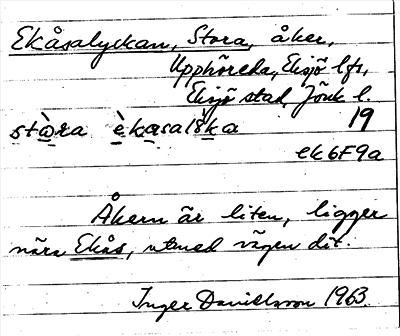 Ekåsalyckan, Stora, åker,
Upphöreda, Eksjö lfs,
Eksjö stad, Jönk l.
19
ek6F9a
Åkern är liten, ligger
nära Ekås, utmed vägen dit.
Inger Danielsson 1963.